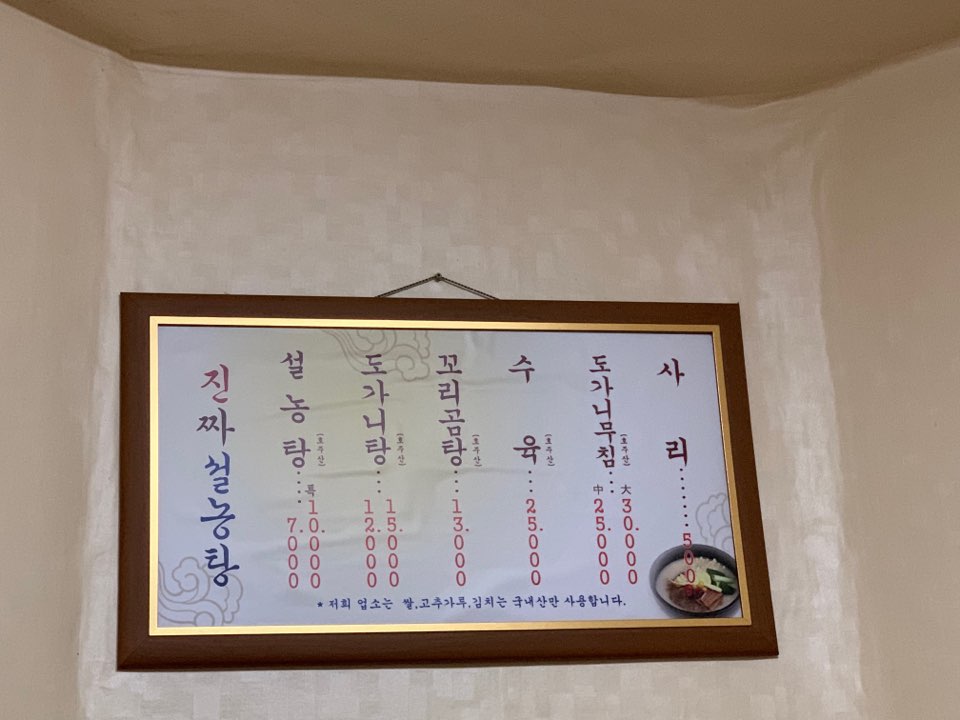 진짜설농탕
설농탕(호주산)
특 10.000
7.000
도가니탕(호주산)
15.000
12.000
꼬리곰탕(호주산)
13.000
수육(호주산)
25.000
도가니무침(호주산)
大 30.000
中 25.000
사리
500
*저희 업소는 쌀,고추가루,김치는 국내산만 사용합니다.